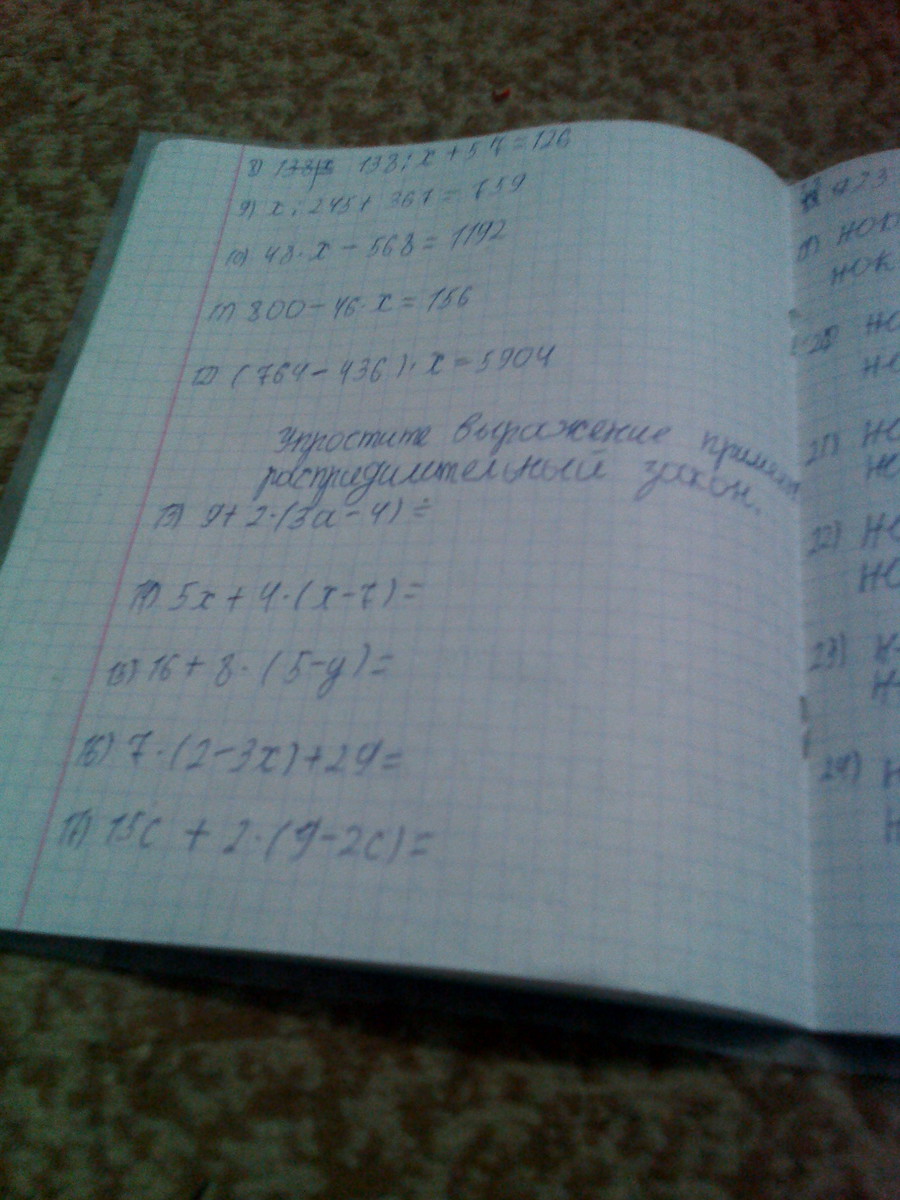 8) 138:x 138:x+57=126
9) x:245+367=759
10) 48·x-568=1192
11) 800-46·x=156
12) (764-436)·x=5904
Упростите выражение применяя
распридилительный закон.
13) 9+2·(3a-4)=
14) 5x+4·(x-7)=
15) 16+8·(5-y)=
16) 7·(2-3x)+29=
17) 15c+2·(9-2c)=
923
19) НОК
НОК
20) НО
НО
21) НО
НО
22) НО
НО
23) Н
Н
24) Н
Н